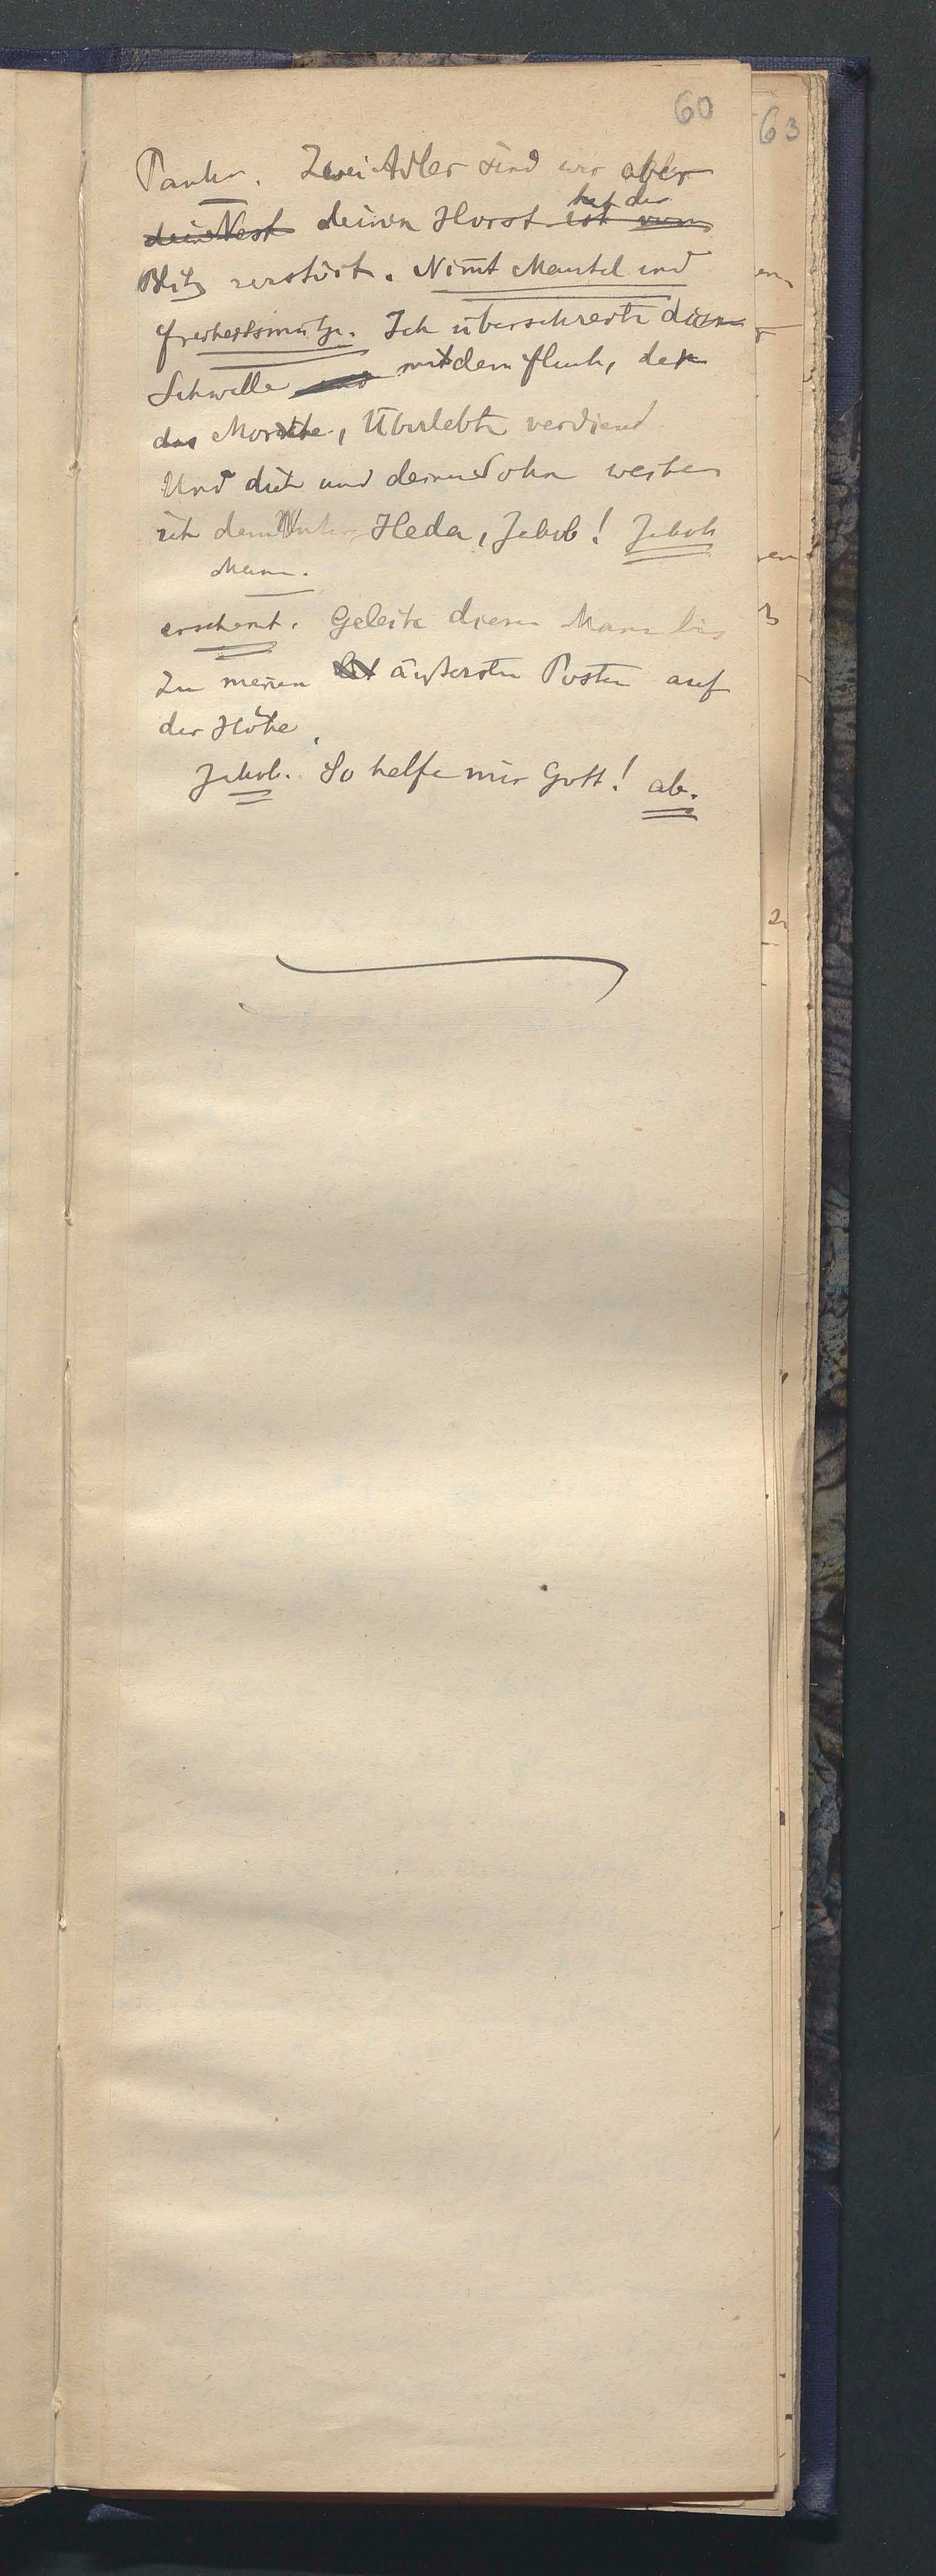 60
63
Zwei Adler sind wir aber
dein Nest deinen Horst ist vom
hat der
Blitz zerstört. Nimt Mantel und
Freiheitsmütze. Ich überschreite diese
Schwelle und mit dem Fluch, den
das Morsche, Überlebte verdient
Und dich und deinen Sohn weihe
ich dem Heda, Jakob! Jakob
erscheint. Geleite diesen Mann bis
Zu meinen äußersten Posten auf
der Höhe.
Jakob. So helfe mir Gott! ab.